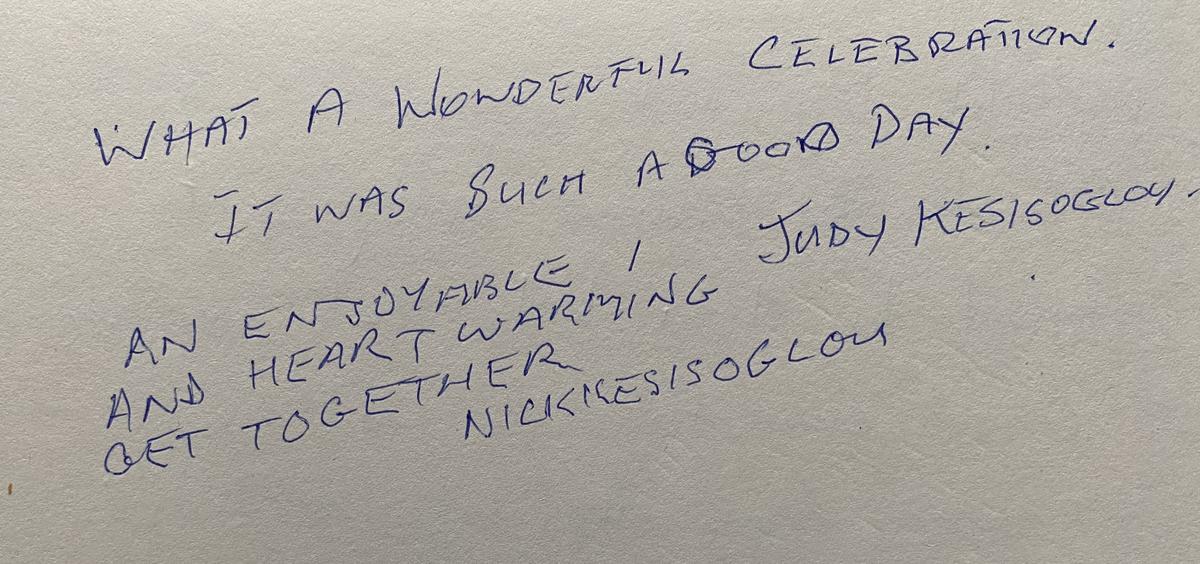 WHAT A WONDERFUL CELEBRATION.
IT WAS SUCH A GOOD DAY.
JUDY KESISOGLOU.
AN ENJOYABLE,
AND HEART WARMING
GET TOGETHER
NICK KESISOGLOU